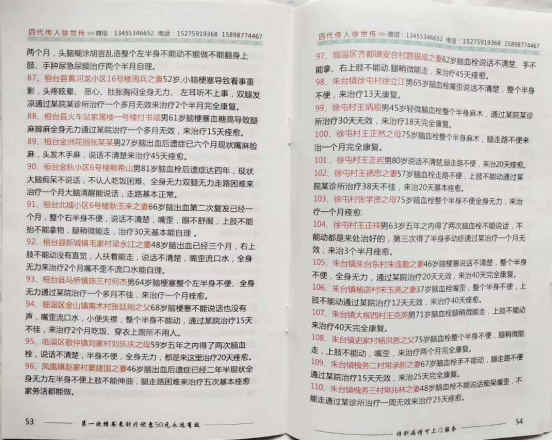 四代传人徐世传>>>微信：13455346652 电话：15275919368 15898774467
两个月，头脑糊涂胡言乱语整个左半身不能动不能做不能翻身上
肢、手肿尿急尿频治疗两个半月自理。
87、桓台县黄河龙小区16号楼周兵之妻52岁,小脑梗塞导致看事重
影，头疼眩晕、恶心、肚胀胸闷全身无力、左耳听不上事，双腿发
凉通过某某诊所治疗一个多月无效来治疗2个半月完全康复。
88、桓台县火车站家属楼一号楼付书斌男61岁脑梗塞血糖高导致腿
麻脚麻全身无力通过某某治疗一个多月无效，来治疗15天痊愈。
89、桓台金洲花园张某某男27岁脑出血后遗症已六个月现状嘴麻脸
麻，头发木手麻，说话不清楚来治疗45天痊愈。
90、桓台金秋小区6号楼熊希山男81岁脑血栓后遗症达四年，现状
大脑痴呆不说话，不认人吃饭困难、全身无力双腿无力走路困难来
治疗一个月大脑清醒能说话，走路基本正常。
91、桓台北城小区6号楼耿玉来之妻66岁脑出血第二次复发已经一
个月，整个右半身不便，说话不清楚，嘴歪，眼不舒服，上肢不能
抬不能拿物，腿稍微能走，治疗30天基本能自理。
92、桓台县新城镇毛家村梁永江之妻48岁脑出血已经三个月，右上
肢不能动没有直觉，人扶着能走，说话不清楚，嘴歪流口水，全身
无力来治疗2个月嘴不歪不流口水能自理。
93、桓台县马桥镇陈三村何杰男64岁脑梗塞整个左半身不便、全身
无力通过某院治疗一个多月不佳，来治疗一个月痊愈。
94、临淄区金山镇南术村张廷刚之父68岁脑梗塞不能说话也没有
声，嘴歪流口水，小便失禁，整个半身不能动，通过某院治疗15天
不佳，来治疗2个月吃饭，穿衣上厕所不用人。
95、临淄区敬仲镇刘家村刘乐庆之母59岁五年之内得了两次脑血
栓，说话不清楚，半身不便，全身无力，都是来这里治疗20天痊愈。
96、凤凰镇赵家村窦建国之妻46岁脑出血后遗症已经二年半现状全
身无力左半身不便上肢不能伸曲，腿走路困难来治疗五次基本痊愈
家务活都能做。
53 第一次特惠来针疗优惠50元永远有效
四代传人徐世传>>>微信：13455346652 电话：15275919368 15898774467
97、临淄区齐都镇安合村路银成之妻62岁脑血栓说话不清楚、手不
能拿、右上肢不能动,腿稍微能走，来治疗45天痊愈。
98、朱台镇徐屯村徐立江男65岁脑血栓嘴歪说话不清楚，整个半身
不便，来治疗13天康复。
99、徐屯村王炳顺男45岁轻微脑血栓整个半身麻木，通过某某诊
所治疗30天无效，来治疗18天完全康复。
100、徐屯村王正然之母75岁脑血栓整个半身麻木，腿走路不便来
治一个月完全康复。
101、徐屯村王正岩男80岁说话不清楚,腿走路不便，来治疗20天康复。
102、徐屯村王德忠之妻57岁脑血栓说话不清楚，上肢不能动通过某
院某诊所治疗38天不佳，来治疗20天基本痊愈。
103、徐屯村张学贤之母75岁脑血栓整个半身不便全身无力，来治疗
一个月痊愈。
104、徐屯村王正祥男63岁五年之内得了两次脑血栓不能说话，不
能动都是来处治好的，第三次得了半身多动症通过某某治疗一个月无
效，来治3个半月痊愈。
105、朱台镇朱台东村朱连勤之妻46岁脑梗塞说话不清楚，整个半身
不便，全身无力，通过某院治疗20天无效，来治疗40天完全康复。
106、朱台镇杨店村宋玉亮之妻37岁脑血栓嘴歪，整个半身不便，上
肢不能动通过某院治疗12天无效，来治疗40天痊愈。
107、朱台镇大柳西村王克英男71岁脑血栓腿稍微能走，上肢不能动
来治疗40天完全康复。
108、朱台镇史家村杨洪恩之父75岁脑血栓整个半身不便，腿稍微能
走，上肢不能动，嘴歪，来治疗两个月完全康复。
109、朱台镇槐务二村常承新之妻67岁脑血栓手不能动，腿走路不便
通过某院治疗15天无效，来治疗25天完全康复。
110、朱台镇槐务三村常兆林之妻48岁脑血栓不能说话痴呆嘴歪，不
能走通过某诊所治疗一周无效来治疗两个月完全康复。
特别病情可上门服务 54